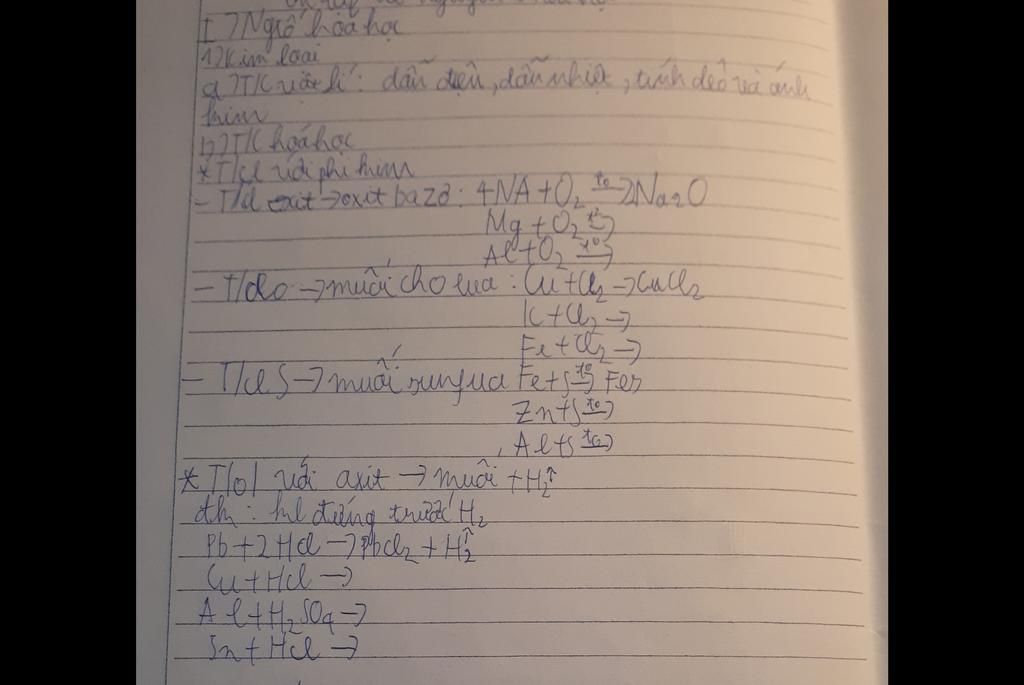 I) Ngtố hóa học
1) Kim loại
a) T/C vật lí: dẫn điện, dẫn nhiệt, tính dẻo và ánh
kim
b) T/C hoá học
* T/d với phi kim
- T/d oxit → oxit bazơ: 4NA + O₂ t⁰→ 2Na₂O
Mg + O₂ t⁰→
Al + O₂ t⁰→
- T/d → muối clo rua: Cu + Cl₂ → CuCl₂
K + Cl₂ →
Fe + Cl₂ →
- T/d S → muối sunfua Fe + S t⁰→ FeS
Zn + S t⁰→
Al + S t⁰→
* T/d với axit → muối + H₂↑
đk: kl đứng trước H₂
Pb + 2HCl → PbCl₂ + H₂↑
Cu + HCl →
Al + H₂SO₄ →
Sn + HCl →